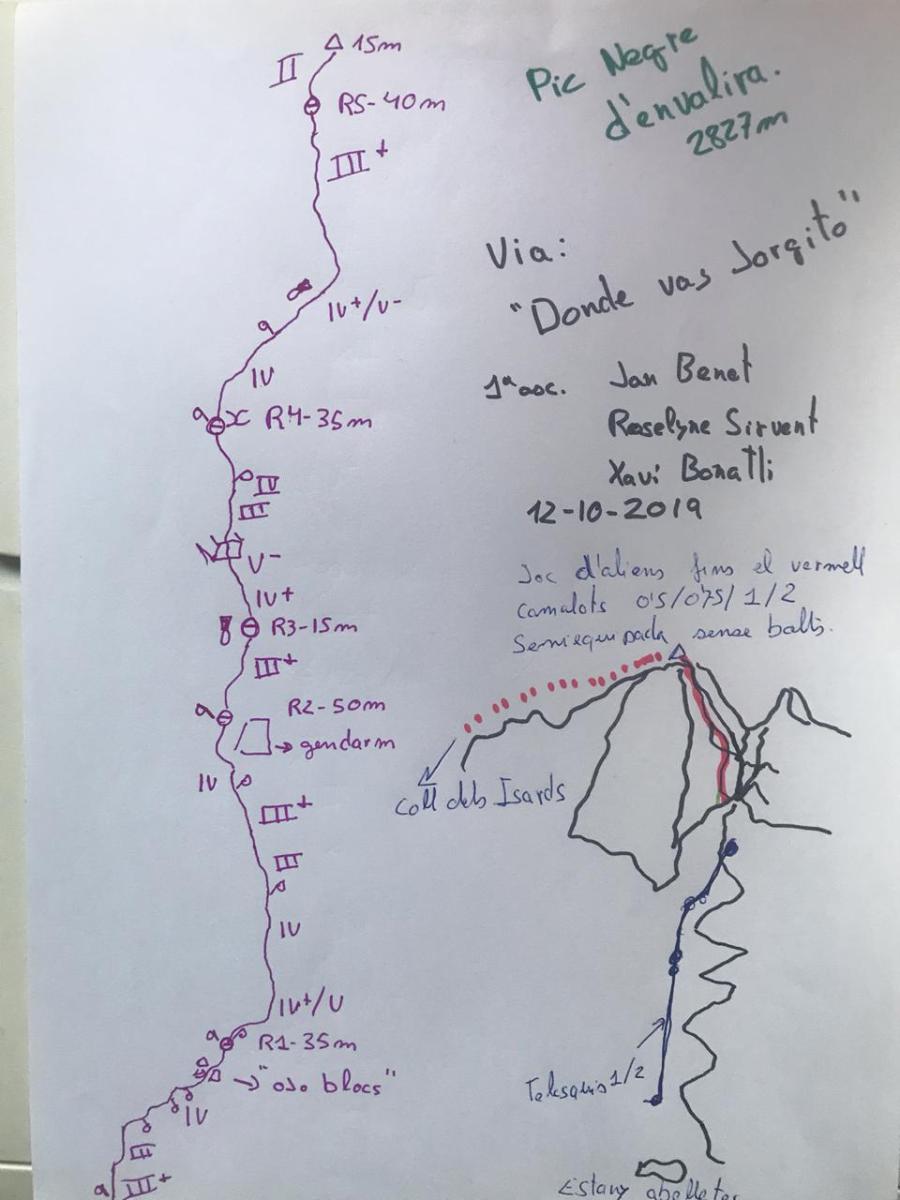 △ 15m
II
R5-40m
III+
IV+/V-
IV
R4-35m
IV
III
V-
IV+
R3-15m
III+
R2-50m
→ gendarm
IV
III+
III
IV
IV+/V
R1-35m
→ "oso blocs"
IV
III+
Pic Negre
d'envalira.
2827m
Via:
"Donde vas Jorgito"
1ª asc. Jan Benet
Roselyne Sirvent
Xavi Bonatti
12-10-2019
Joc d'aliens fins el vermell
camalots 0'5/0'75/1/2
Semiequipada sense bolts.
Coll dels Isards
Telesquis 1/2
Estany abelletes